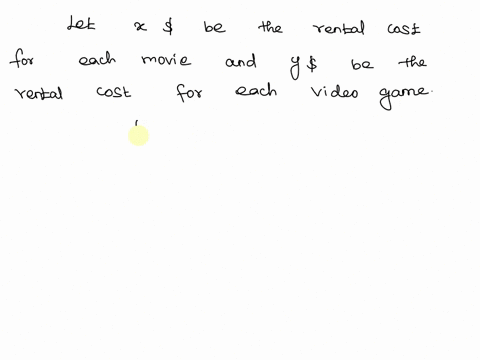 Let x $ be the rental cost
for each movie and y $ be the
rental cost for each video game.